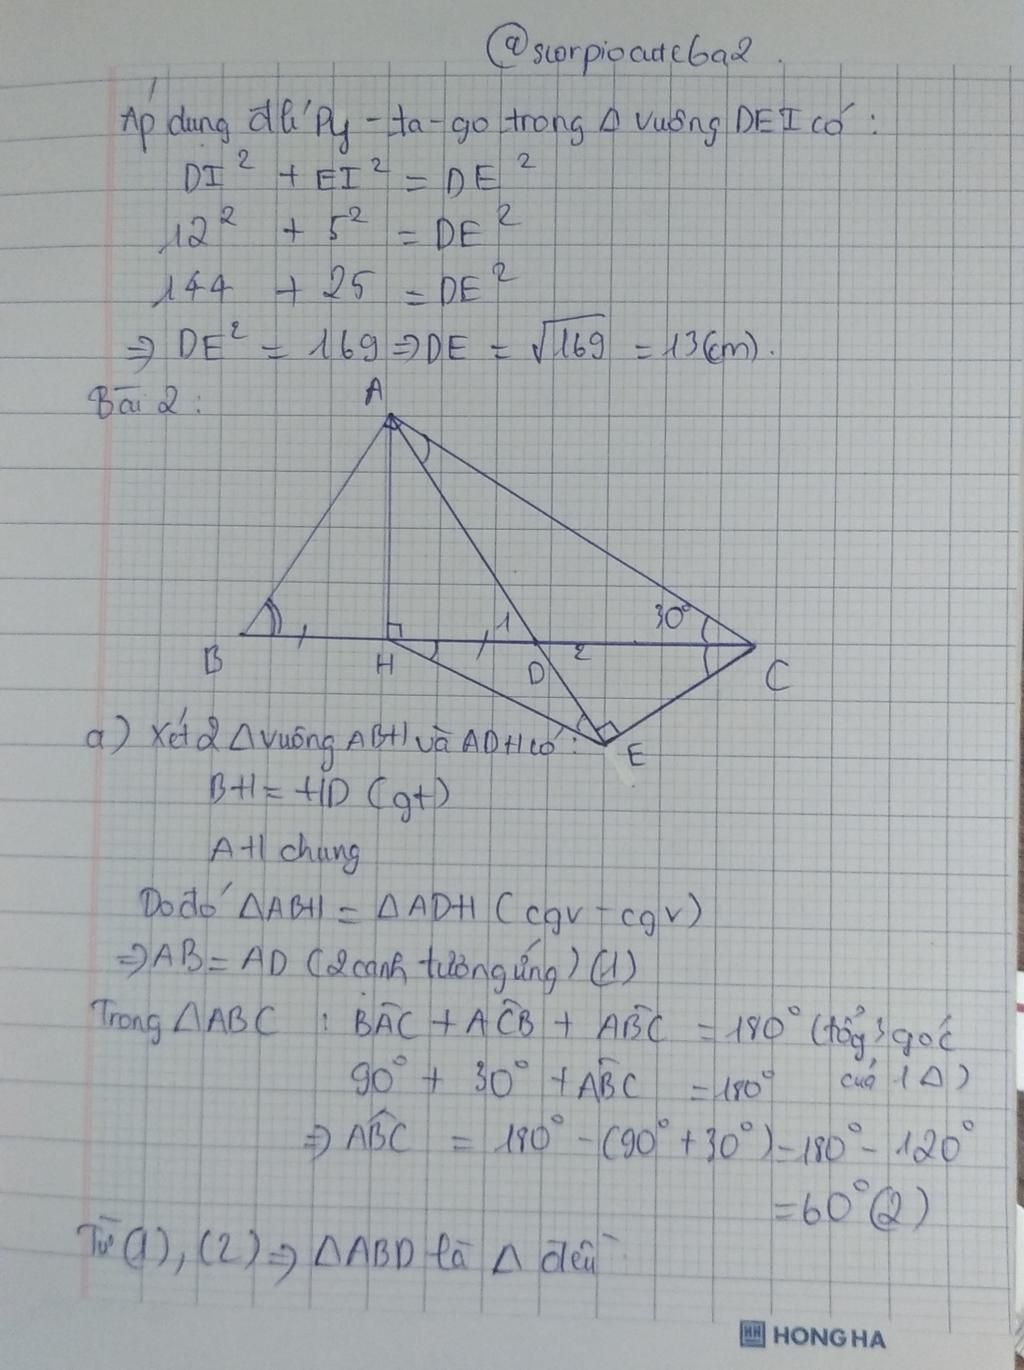 @scorpioautc6a2.
Áp dụng đ lí Py-ta-go trong Δ vuông DEI có:
DI² + EI² = DE²
12² + 5² = DE²
144 + 25 = DE²
⇒ DE² = 169 ⇒ DE = √169 = 13(cm).
Bài 2:
A
30°
1
B
H
D
2
C
E
a) Xét 2 Δ vuông ABH và ADH có:
BH = HD (gt)
AH chung
Do đó ΔABH = ΔADH (cgv - cgv)
⇒ AB = AD (2 cạnh tương ứng) (1)
Trong ΔABC : BÂC + AĈB + AB̂C = 180° (tổng 3 góc
90° + 30° + AB̂C = 180° của 1 Δ)
⇒ AB̂C = 180° - (90° + 30°) = 180° - 120°
= 60° (2)
Từ (1), (2) ⇒ ΔABD là Δ đều
HH HONG HA